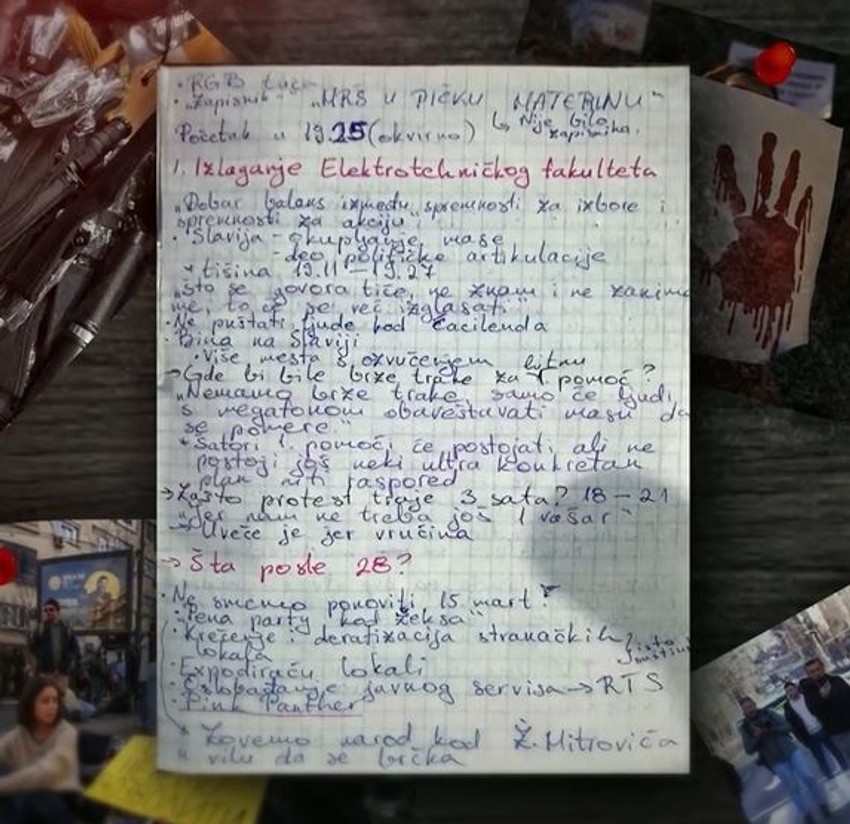 · RGB
· „Zapisnik – „MRŠ U PIČKU MATERINU"
↳ Nije bilo zapisnika.
Početak u 19.25 (okvirno)
1. Izlaganje Elektrotehničkog fakulteta
„Dobar balans između spremnosti za izbore i
spremnosti za akciju"
· Slavija – okupljanje mase
– deo političke artikulacije
* tišina 19.11 – 19.27
„Što se govora tiče, ne znam i ne zanima
me, to će se već izglasati"
· Ne puštati ljude kod Ćacilenda
· Bina na Slaviji
· Više mesta s ozvučenjem bitnu
→ Gde bi bile brze trake za 1 pomoć?
„Nemamo brze trake, samo će ljudi
s megafonom obaveštavati masu da
se pomere."
* Šatori 1. pomoći će postojati, ali ne
postoji još neki ultra konkretan
plan niti raspored
→ Zašto protest traje 3 sata? 18 – 21
„Jer nam ne treba još 1 vašar"
→ Uveče je jer vrućina
→ Šta posle 28?
· Ne smemo ponoviti 15. mart!
· „Pena party kod Žeksa"
· Krečenje i deratizacija stranačkih
lokala
· Expodiraću lokali
· Oslobađanje javnog servisa → RTS
· Pink Panther
* Zovemo narod kod Ž. Mitrovića
u vilu da se brčka